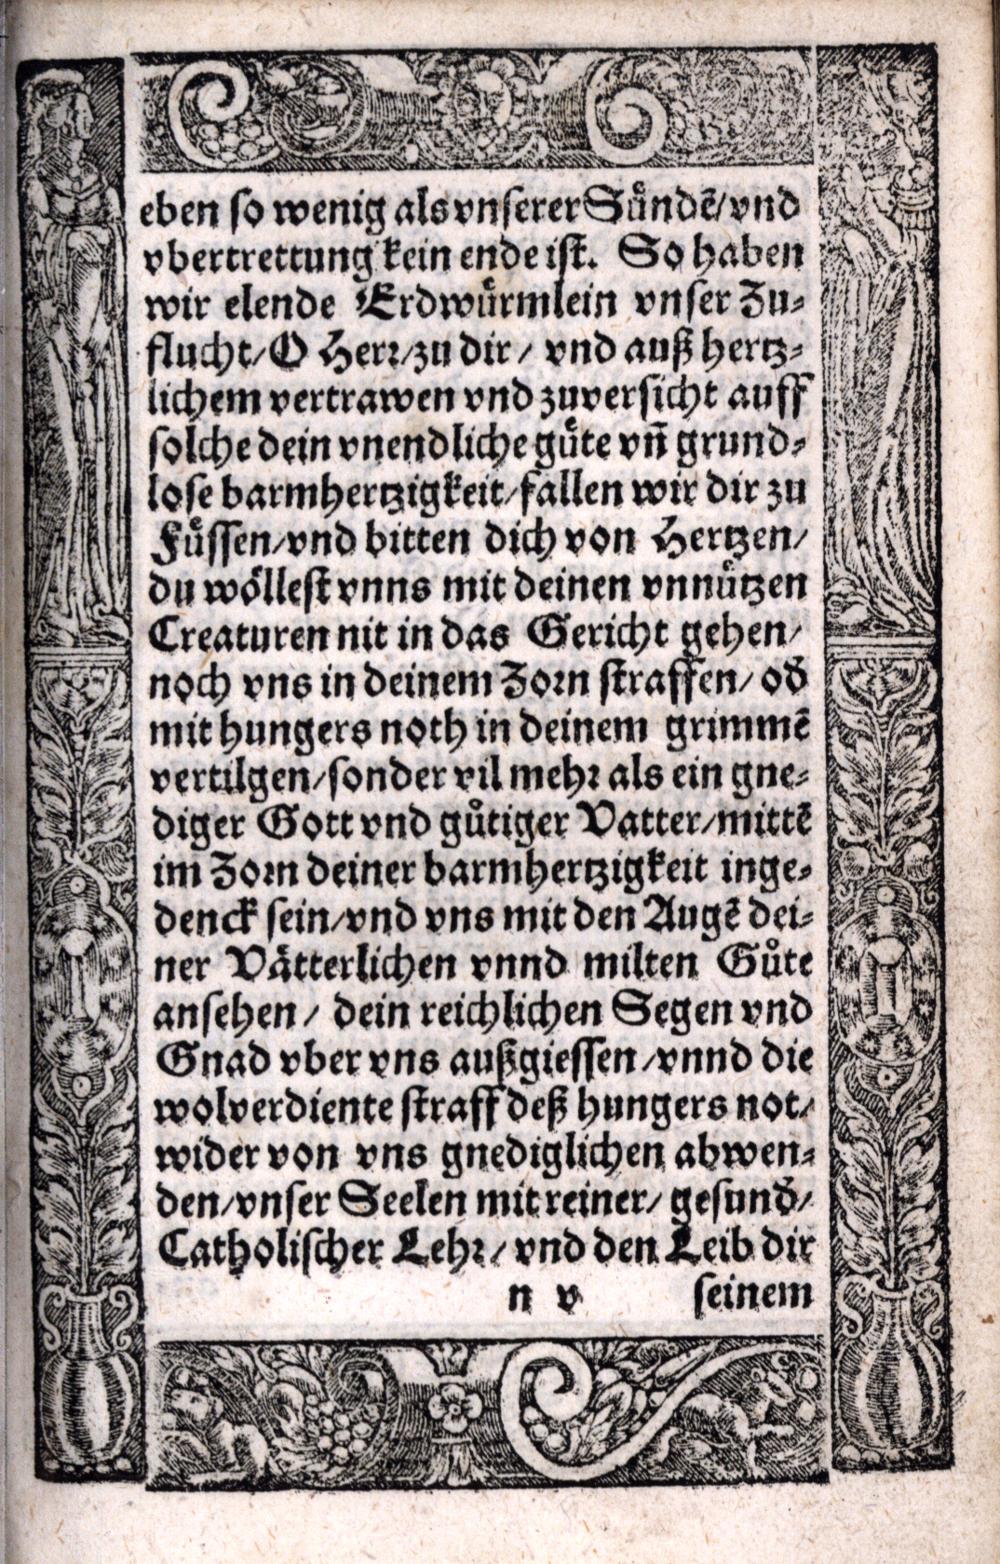 eben so wenig als vnserer Suͤndē/vnd
vbertrettung kein ende ist. So haben
wir elende Erdwuͤrmlein vnser Zu⸗
flucht/O Herꝛ/zu dir/ vnd auß hertz⸗
lichem vertrawen vnd zuversicht auff
solche dein vnendliche guͤte vn̄ grund⸗
lose barmhertzigkeit/fallen wir dir zu
Fuͤssen/vnd bitten dich von Hertzen/
du woͤllest vnns mit deinen vnnuͤtzen
Creaturen nit in das Gericht gehen/
noch vns in deinem Zoꝛn straffen/ od̄
mit hungers noth in deinem grimmē
vertilgen/sonder vil mehꝛ als ein gne⸗
diger Gott vnd guͤtiger Vatter/mittē
im Zoꝛn deiner barmhertzigkeit inge⸗
denck sein/vnd vns mit den Augē dei⸗
ner Vaͤtterlichen vnnd milten Guͤte
ansehen/ dein reichlichen Segen vnd
Gnad vber vns außgiessen/vnnd die
wolverdiente straff deß hungers not/
wider von vns gnediglichen abwen⸗
den/vnser Seelen mit reiner/ gesund̄/
Catholischer Lehꝛ/ vnd den Leib dir
n v seinem